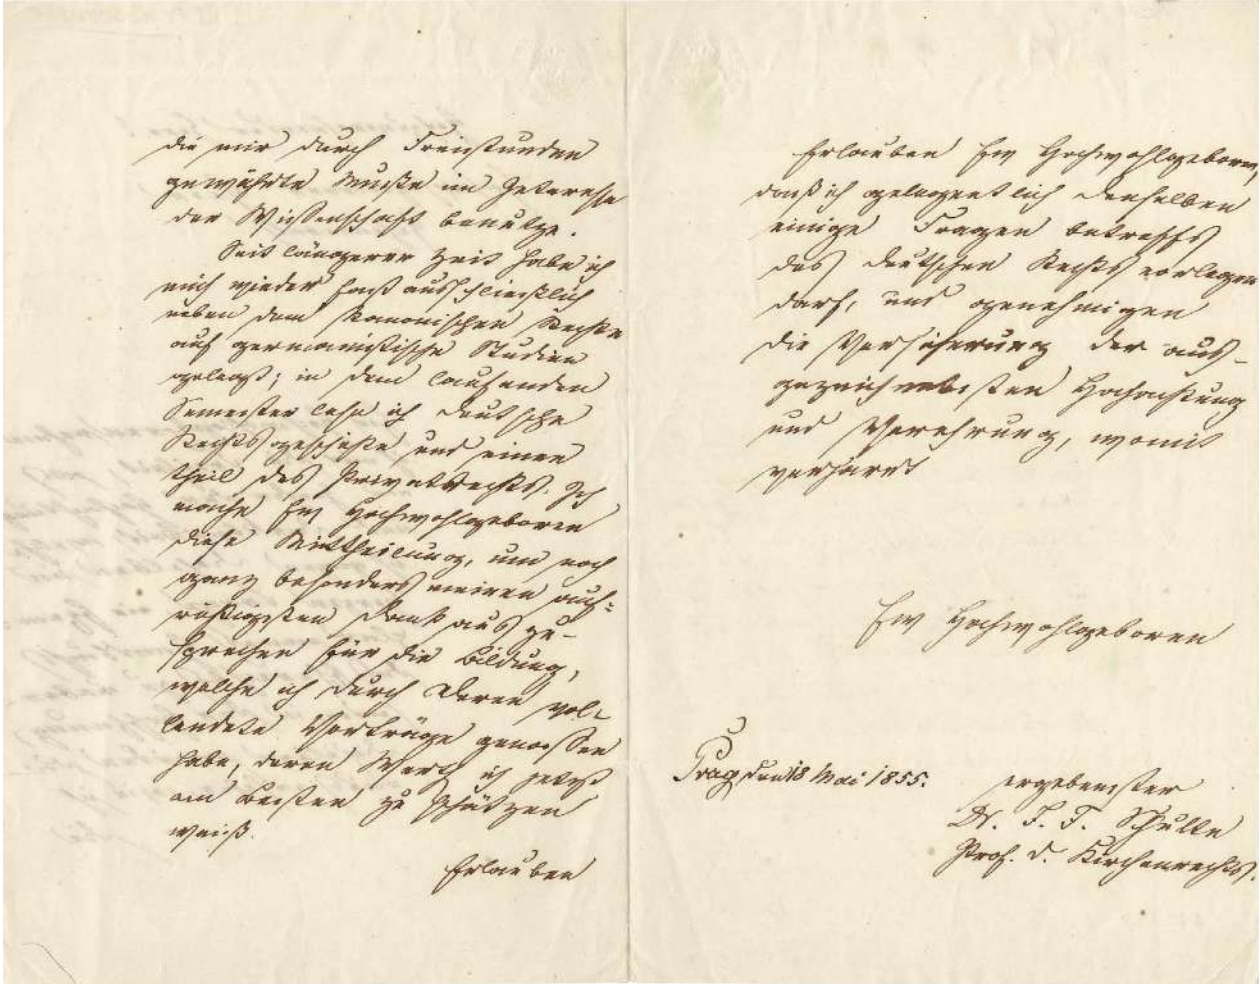 die mir durch Freistunden
gewährte Muße im Interesse
der Wissenschaft benutze.
Seit längerer Zeit habe ich
mich wieder fast ausschließlich
neben dem kanonischen Rechte
auf germanistische Studien
gelegt; in dem laufenden
Semester lese ich deutsche
Rechtsgeschichte und einen
theil des Privatrechts. Ich
mache Ew Hochwohlgeboren
diese Mittheilung, um noch
ganz besonders meinen auf-
richtigsten Dank auszu-
sprechen für die Bildung,
welche ich durch Deren voll-
endete Vorträge genossen
habe, deren Werth ich jetzt
am Besten zu schätzen
weiß.
Erlauben
Erlauben Ew Hochwohlgeboren,
daß ich gelegentlich denselben
einige Fragen betreffs
des deutschen Rechts vorlegen
darf, und genehmigen
die Versicherung der aus-
gezeichnetesten Hochachtung
und Verehrung, womit
verharrt
Ew Hochwohlgeboren
Prag, den 18 Mai 1855.
ergebenster
Dr. J. F. Schulte
Prof. d. Kirchenrechts.